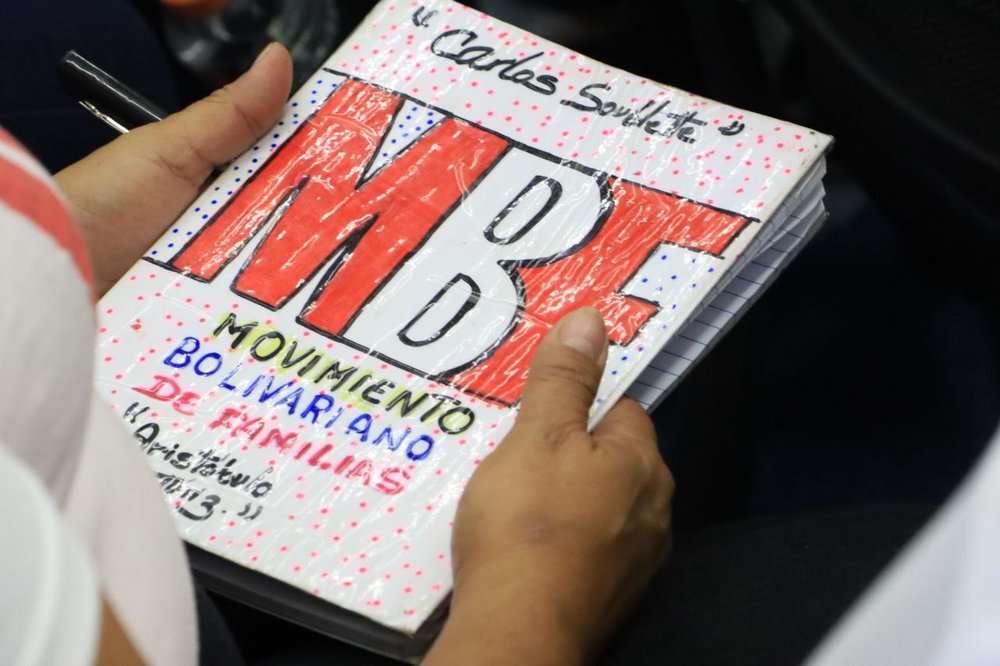 "Carlos Soublette"
MBF
MOVIMIENTO
BOLIVARIANO
DE FAMILIAS
"Aristóbulo
"